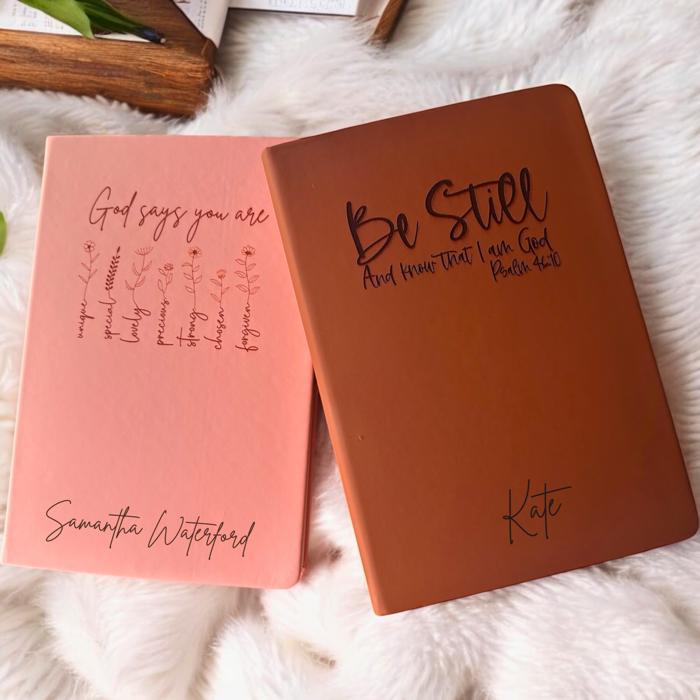 God says you are
unique
special
lovely
precious
strong
chosen
forgiven
Samantha Waterford
Be Still
And know that I am God
Psalm 46:10
Kate